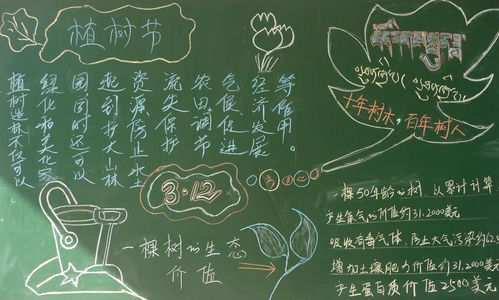 植树节
植树造林不仅可以
绿化和美化家
园同时还可以
起到扩大山林
资源防止水土
流失保护
农田调节
气候促进
经济发展
等作用。
十年树木，百年树人
3.12
一棵树的生态
价值
一棵50年龄的树，以累计计算
产生氧气的价值约31.2000美元
吸收有毒气体，防止大气污染约62.5
增加土壤肥力价值约31.2000美
产生蛋白质价值2500美元